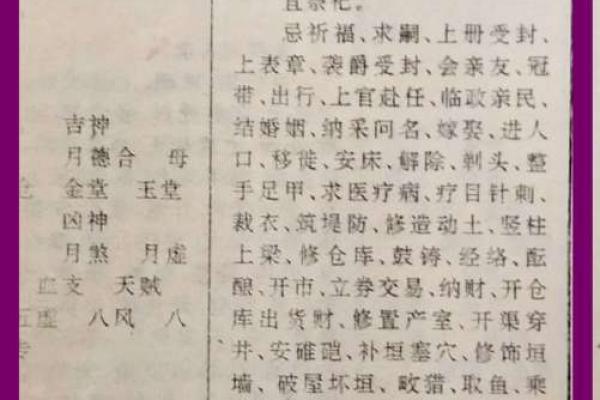 宜祭祀。
忌祈福、求嗣、上册受封、
上表章、袭爵受封、会亲友、冠
带、出行、上官赴任、临政亲民、
结婚姻、纳采问名、嫁娶、进人
口、移徙、安床、解除、剃头、整
手足甲、求医疗病、疗目针刺、
裁衣、筑堤防、修造动土、竖柱
上梁、修仓库、鼓铸、经络、酝
酿、开市、立券交易、纳财、开仓
库出货财、修置产室、开渠穿
井、安碓硙、补垣塞穴、修饰垣
墙、破屋坏垣、畋猎、取鱼、乘
吉神
月德合 母
金堂 玉堂
凶神
月煞 月虚
血支 天贼
五虚 八风 八